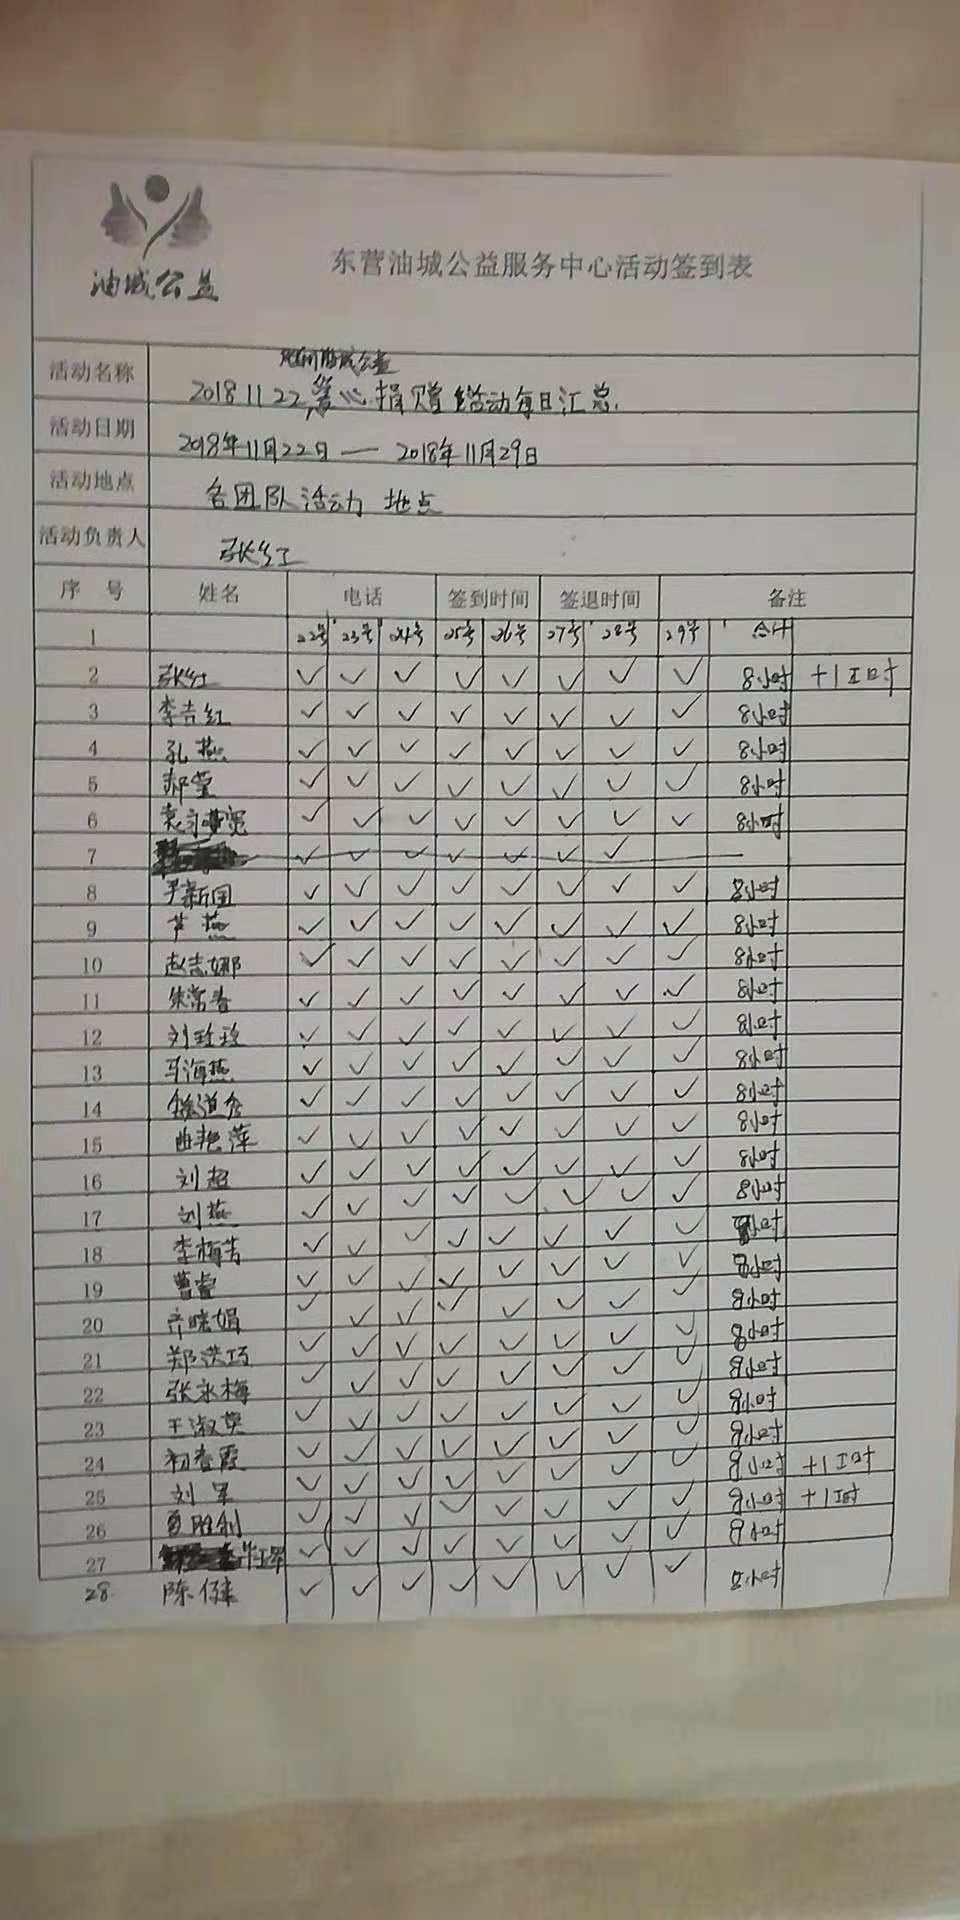 油城公益
东营油城公益服务中心活动签到表
油城公益
活动名称 2018 11 22 爱心捐赠 活动每日汇总.
活动日期 2018年11月22日 — 2018年11月29日
活动地点 各团队活动 地点
活动负责人 张红
序 号 姓名 电话 签到时间 签退时间 备注
1 22号 23号 24号 25号 26号 27号 28号 29号 合计
2 张红 ✓ ✓ ✓ ✓ ✓ ✓ ✓ ✓ 8小时 +1工时
3 李吉红 ✓ ✓ ✓ ✓ ✓ ✓ ✓ ✓ 8小时
4 孔燕 ✓ ✓ ✓ ✓ ✓ ✓ ✓ ✓ 8小时
5 ✓ ✓ ✓ ✓ ✓ ✓ ✓ ✓ 8小时
6 ✓ ✓ ✓ ✓ ✓ ✓ ✓ ✓ 8小时
7 ✓ ✓ ✓ ✓ ✓ ✓ ✓
8 尹新国 ✓ ✓ ✓ ✓ ✓ ✓ ✓ ✓ 8小时
9 芦燕 ✓ ✓ ✓ ✓ ✓ ✓ ✓ ✓ 8小时
10 赵志娜 ✓ ✓ ✓ ✓ ✓ ✓ ✓ ✓ 8小时
11 朱常春 ✓ ✓ ✓ ✓ ✓ ✓ ✓ ✓ 8小时
12 刘玲玲 ✓ ✓ ✓ ✓ ✓ ✓ ✓ ✓ 8小时
13 马海燕 ✓ ✓ ✓ ✓ ✓ ✓ ✓ ✓ 8小时
14 ✓ ✓ ✓ ✓ ✓ ✓ ✓ ✓ 8小时
15 曲艳萍 ✓ ✓ ✓ ✓ ✓ ✓ ✓ ✓ 8小时
16 刘超 ✓ ✓ ✓ ✓ ✓ ✓ ✓ ✓ 8小时
17 刘燕 ✓ ✓ ✓ ✓ ✓ ✓ ✓ ✓ 8小时
18 李梅芳 ✓ ✓ ✓ ✓ ✓ ✓ ✓ ✓ 8小时
19 ✓ ✓ ✓ ✓ ✓ ✓ ✓ ✓ 8小时
20 齐晓娟 ✓ ✓ ✓ ✓ ✓ ✓ ✓ ✓ 8小时
21 郑洪巧 ✓ ✓ ✓ ✓ ✓ ✓ ✓ ✓ 8小时
22 张永梅 ✓ ✓ ✓ ✓ ✓ ✓ ✓ ✓ 8小时
23 王淑英 ✓ ✓ ✓ ✓ ✓ ✓ ✓ ✓ 8小时
24 初春霞 ✓ ✓ ✓ ✓ ✓ ✓ ✓ ✓ 8小时 +1工时
25 刘军 ✓ ✓ ✓ ✓ ✓ ✓ ✓ ✓ 8小时 +1工时
26 ✓ ✓ ✓ ✓ ✓ ✓ ✓ ✓ 8小时
27 ✓ ✓ ✓ ✓ ✓ ✓ ✓ ✓
28. 陈健 ✓ ✓ ✓ ✓ ✓ ✓ ✓ ✓ 8小时